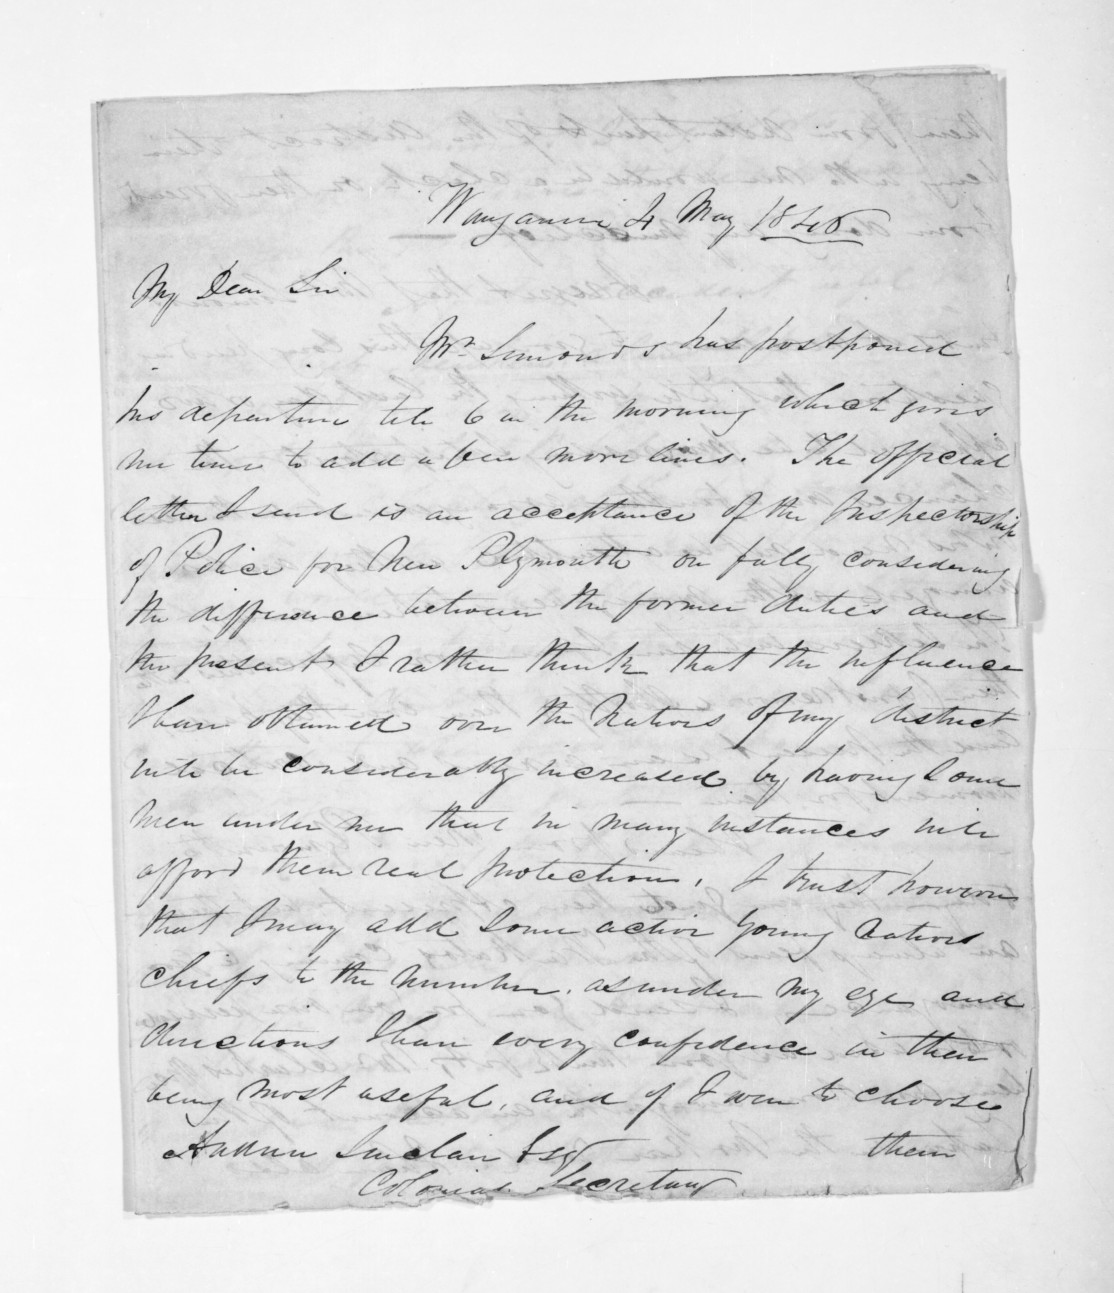 Wanganui 4 May 1846
My Dear Sir
Mr. Simonds has postponed
his departure till 6 in the morning which gives
me time to add a few more lines. The official
letter I send is an acceptance of the Inspectorship
of Police for New Plymouth on fully considering
the difference between the former duties and
the present I rather think that the influence
I have obtained over the Natives of my district
will be considerably increased by having some
men under me that in many instances will
afford them real protection, I trust however
that I may add some active young native
chiefs to the number. as under my eye and
directions I have every confidence in their
being most useful, and if I were to choose
them
Andrew Sinclair Esq
Colonial Secretary